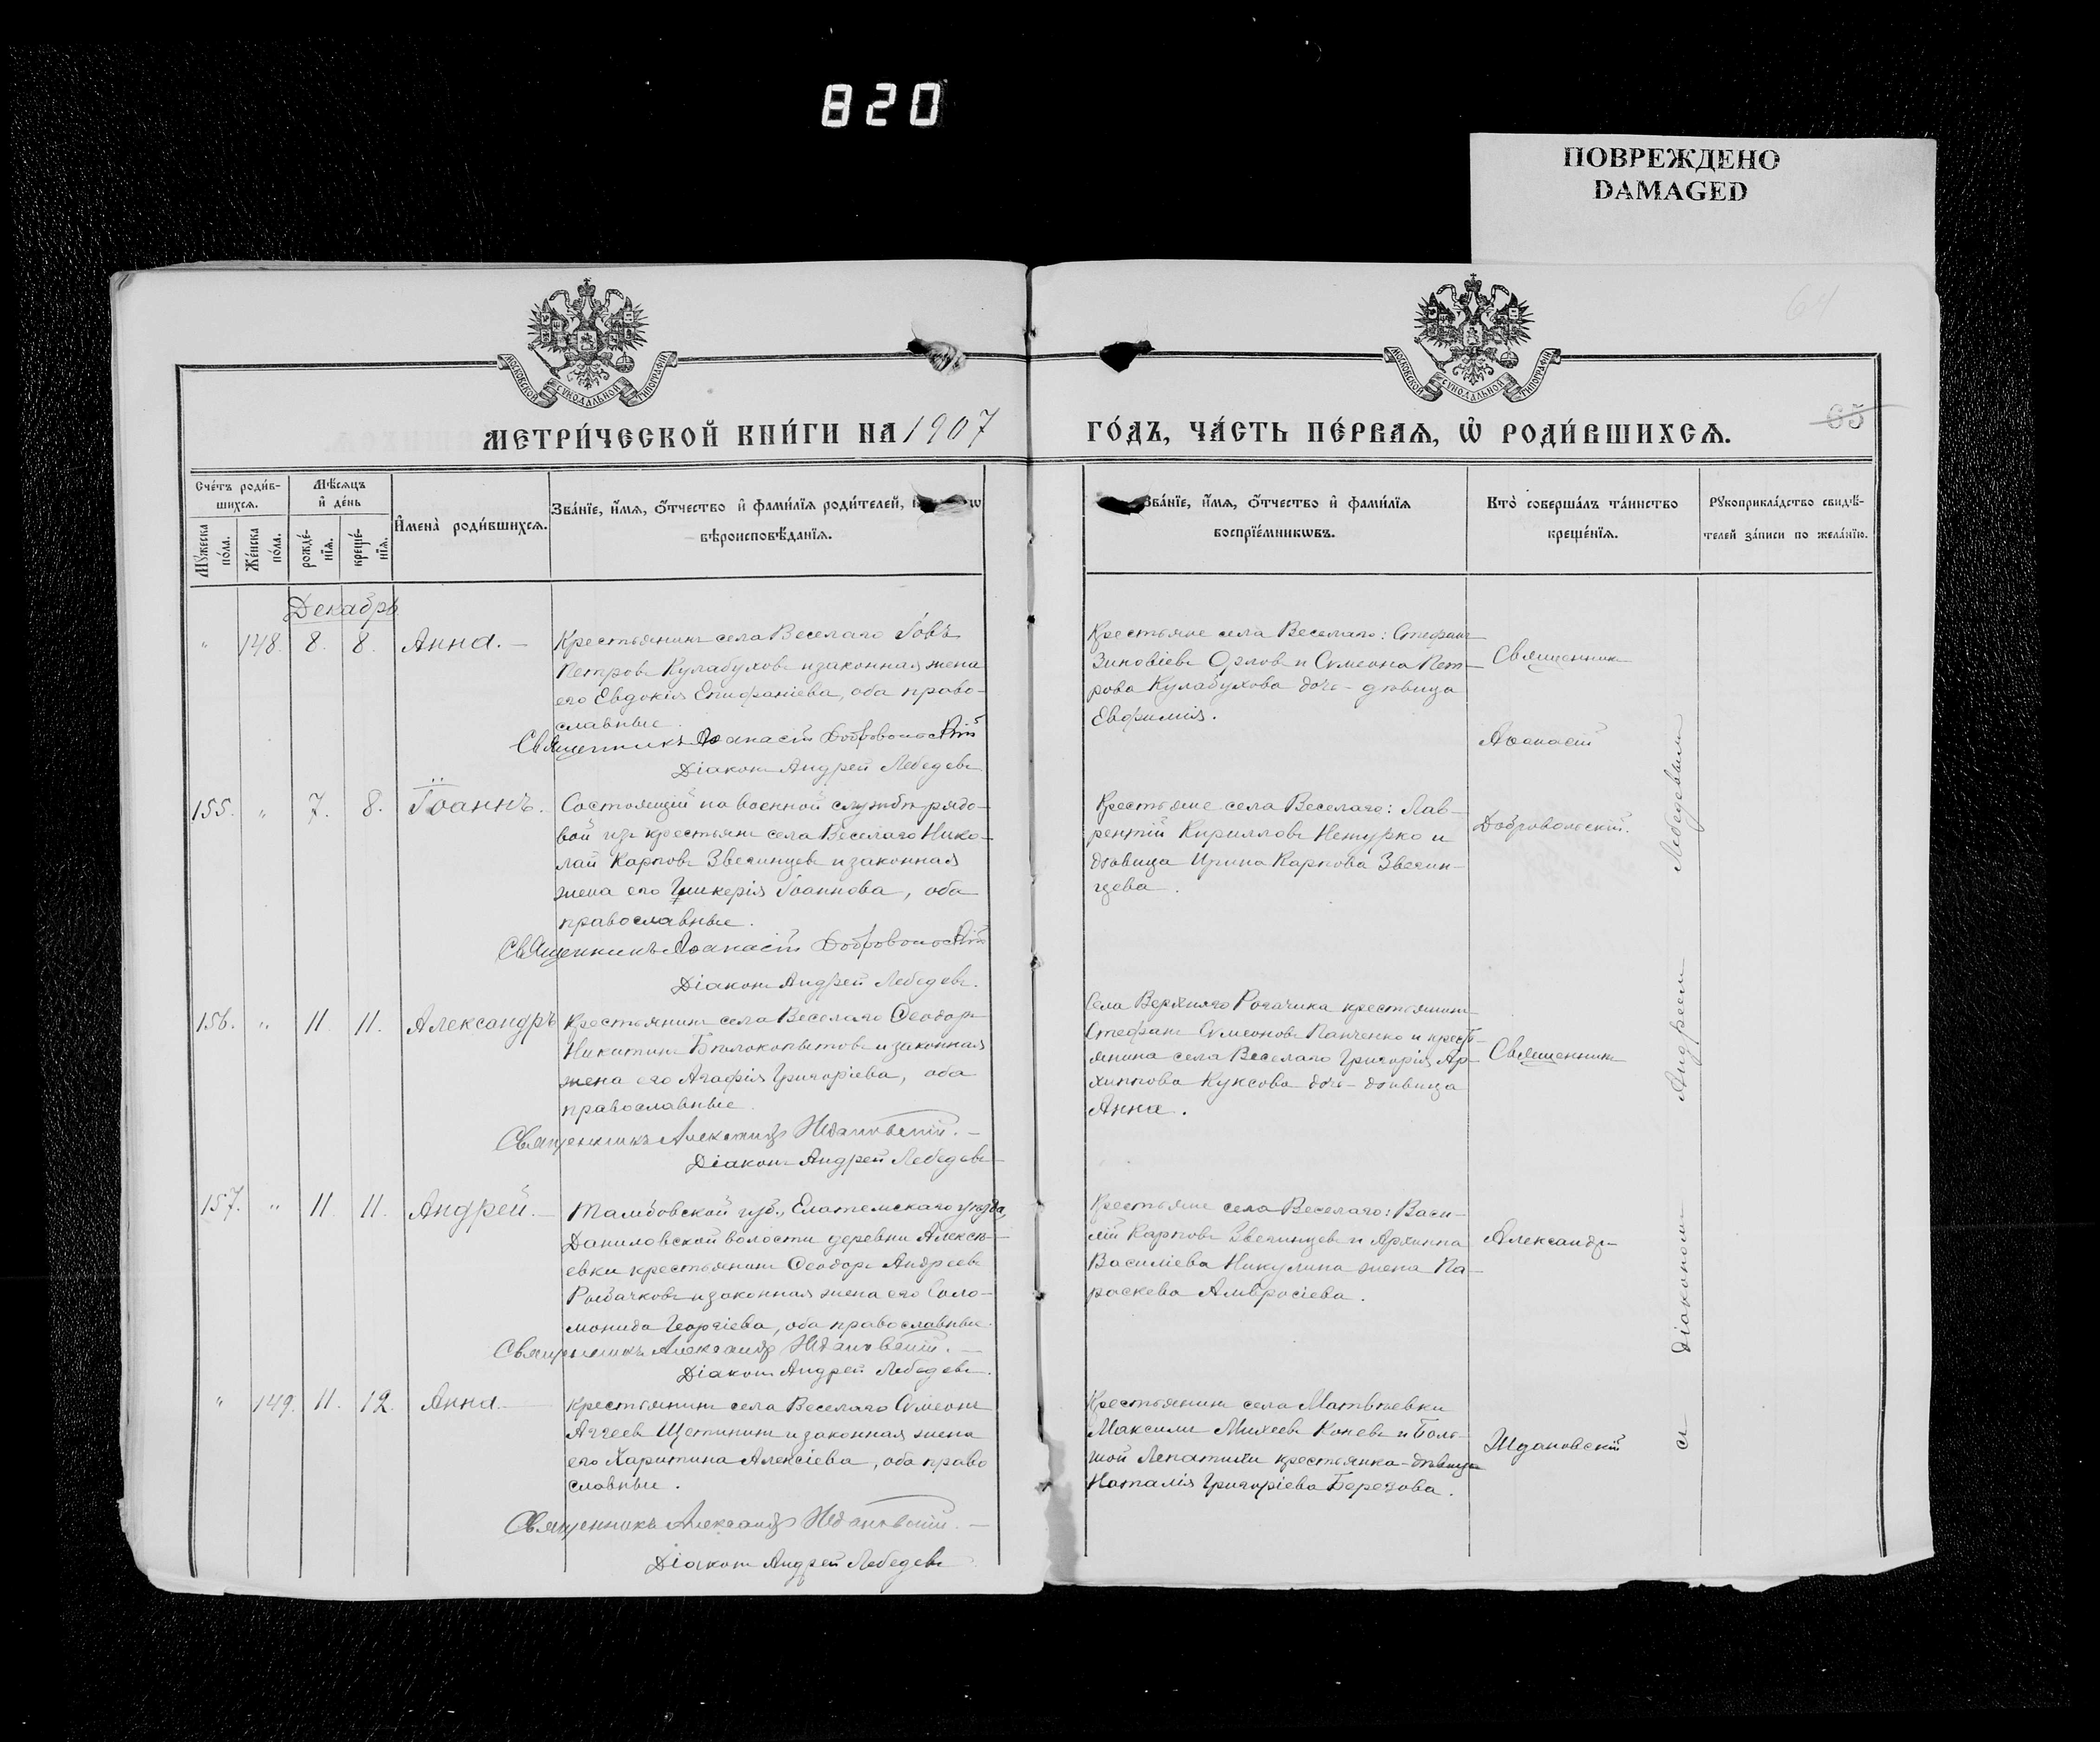 820
ПОВРЕЖДЕНО
DAMAGED
64
МОСКОВСКОЙ СѴНОДАЛЬНОЙ ТИПОГРАФІИ
МОСКОВСКОЙ СѴНОДАЛЬНОЙ ТИПОГРАФІИ
МЕТРИ́ЧЕСКОЙ КНИ́ГИ НА 1907
ГО́ДЪ, ЧА́СТЬ ПЕ́РВАЯ, Ѡ҆ РОДИ́ВШИХСЯ.
65
Сче́тъ роди́в-
шихся.
Мѣ́сяцъ
и҆ де́нь
Мꙋ́жеска
по́ла.
Же́нска
по́ла.
рожде́-
нїя.
креще́-
нїя.
И҆мена̀ роди́вшихся.
Зва́нїе, и҆́мя, ѻ҆́тчество и҆ фами́лїя роди́телей,
вѣроисповѣ́данїя.
Зва́нїе, и҆́мя, ѻ҆́тчество и҆ фами́лїя
воспрїе́мникѡвъ.
Кто̀ соверша́лъ та́инство
креще́нїя.
Рꙋкоприкла́дство свидѣ́-
телей за́писи по жела́нїю.
Декабрь
" 148. 8. 8. Анна. —
Крестьянинъ села Веселаго Іовъ
Петровъ Кулабуховъ и законная жена
его Евдокія Епифаніева, оба право-
славные.
Священникъ Аѳанасій Добровольскій
Діаконъ Андрей Лебедевъ
Крестьяне села Веселаго: Стефанъ
Зиновіевъ Орловъ и Симеона Пет-
рова Кулабухова дочь - дѣвица
Евфимія.
Священникъ
Аѳанасій
155. " 7. 8. Іоаннъ.
Состоящій на военной службѣ рядо-
вой изъ крестьянъ села Веселаго Нико-
лай Карповъ Звегинцевъ и законная
жена его Гликерія Іоаннова, оба
православные.
Священникъ Аѳанасій Добровольскій
Діаконъ Андрей Лебедевъ.
Крестьяне села Веселаго: Лав-
рентій Кирилловъ и
дѣвица Ирина Карпова Звегин-
цева.
Добровольскій.
156. " 11. 11. Александръ
Крестьянинъ села Веселаго Ѳеодоръ
Никитинъ Бѣлокопытовъ и законная
жена его Агафія Григоріева, оба
православные
Священникъ Александръ Ждановскій. —
Діаконъ Андрей Лебедевъ
Села Верхняго Рогачика крестьянинъ
Стефанъ Симеоновъ Панченко и кресть-
янина села Веселаго Григорія Ар-
хиппова Куксова дочь - дѣвица
Анна.
Священникъ
157. " 11. 11. Андрей. —
Тамбовской губ., Елатемскаго уѣзда,
Даниловской волости деревни Алексѣ-
евки крестьянинъ Ѳеодоръ Андреевъ
Рыбачковъ и законная жена его Соло-
монида Георгіева, оба православные.
Священникъ Александръ Ждановскій. —
Діаконъ Андрей Лебедевъ.
Крестьяне села Веселаго: Васи-
лій Карповъ Звегинцевъ и Архиппа
Василіева Никулина жена Па-
раскева Амвросіева.
Александръ
" 149. 11. 12. Анна. —
Крестьянинъ села Веселаго Симеонъ
Аггеевъ Щетининъ и законная жена
его Харитина Алексіева, оба право
славные.
Священникъ Александръ Ждановскій. —
Діаконъ Андрей Лебедевъ
Крестьянинъ села Матвѣевки
Максимъ Михеевъ Коневъ и Боль-
шой Лепатихи крестьянка - дѣвица
Наталія Григоріева Березова.
Ждановскій
съ діакономъ Андреемъ Лебедевымъ